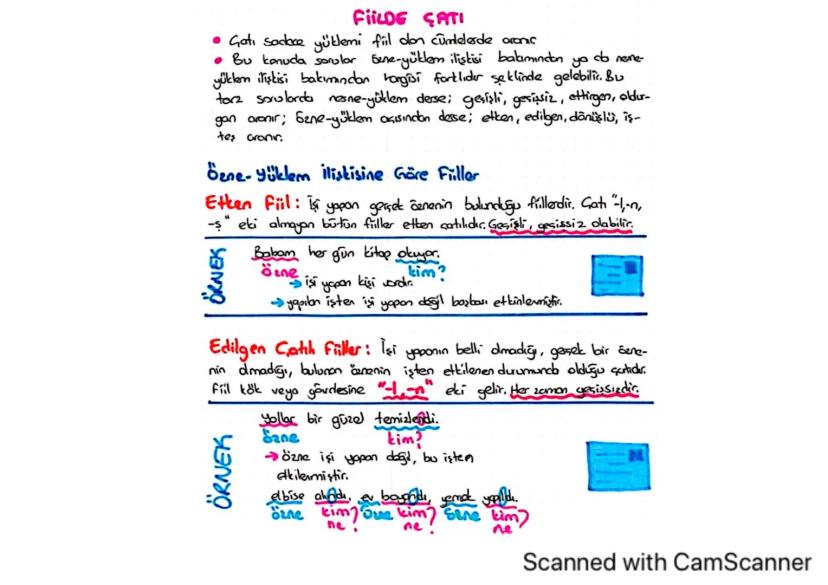 FİİLDE ÇATI
• Çatı sadece yüklemi fiil olan cümlelerde aranır
• Bu konuda sorular özne-yüklem ilişkisi bakımından ya da nesne-
yüklem ilişkisi bakımından hangisi farklıdır şeklinde gelebilir. Bu
tarz sorularda nesne-yüklem derse; geçişli, geçişsiz, ettirgen, oldur-
gan aranır; özne-yüklem açısından derse; etken, edilgen, dönüşlü, iş-
teş aranır.
Özne-Yüklem İlişkisine Göre Fiiller
Etken Fiil: İşi yapan gerçek öznenin bulunduğu fiillerdir. Çatı "-l,-n,
-ş" eki almayan bütün fiiller etken çatılıdır. Geçişli, geçişsiz olabilir.
ÖRNEK
Babam her gün kitap okuyor.
özne kim?
→ işi yapan kişi vardır.
→ yapılan işten işi yapan değil başkası etkilenmiştir.
Edilgen Çatılı Fiiller: İşi yapanın belli olmadığı, gerçek bir özne-
nin olmadığı, bulunan öznenin işten etkilenen durumunda olduğu çatıdır.
Fiil kök veya gövdesine "-l,-n" eki gelir. Her zaman geçişsizdir.
ÖRNEK
Yollar bir güzel temizlendi.
özne kim?
→ özne işi yapan değil, bu işten
etkilenmiştir.
elbise alındı, ev boyandı, yemek yapıldı.
özne kim? özne kim? özne kim?
ne? ne? ne?
Scanned with CamScanner